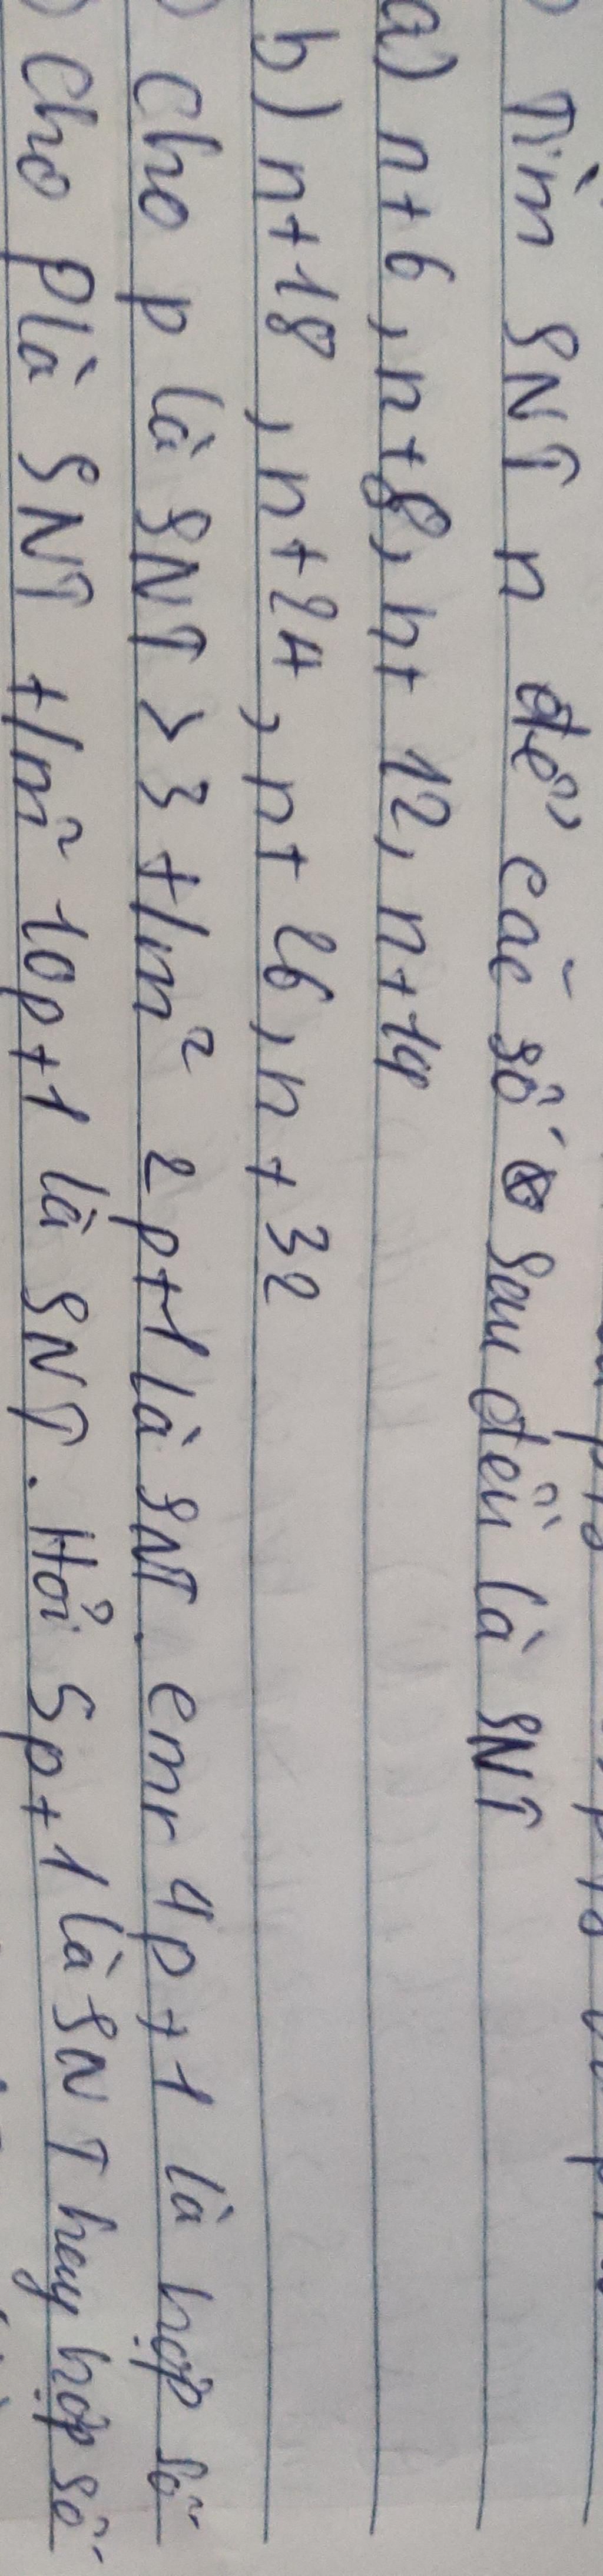 Tìm SNT n để các số sau đều là SNT
a) n+6, n+8, n+12, n+14
b) n+18, n+24, n+26, n+32
Cho p là SNT > 3 t/m² 2p+1 là SNT. cmr 4p+1 là hợp số
Cho p là SNT t/m² 10p+1 là SNT. Hỏi 5p+1 là SNT hay hợp số